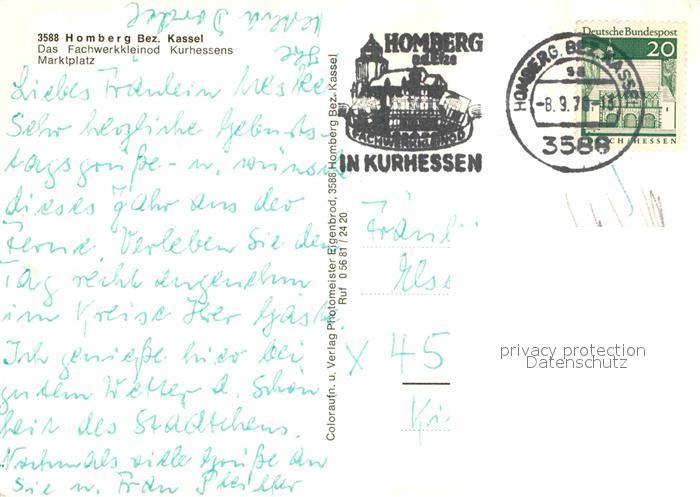 3588 Homberg Bez. Kassel
Das Fachwerkkleinod Kurhessens
Marktplatz
Liebes Fräulein
Sehr herzliche Geburts-
tagsgrüße - u. wünsche
dieses Jahr aus der
Ferne. Verleben Sie den
Tag recht angenehm
im Kreise Ihrer Gäste.
Ich genieße hier bei
gutem Wetter d. Schön
heit des Städtchens.
Nochmals viele Grüße an
Sie u. Frau
Ihre
Coloraufn. u. Verlag Photomeister Eigenbrod, 3588 Homberg Bez. Kassel
Ruf 0 56 81 / 24 20
HOMBERG
IN KURHESSEN
HOMBERG, BEZ. KASSEL
sa
-8.9.70-
3588
Deutsche Bundespost
20
LORSCH / HESSEN
Fräul
Else
X 45
privacy protection
Datenschutz